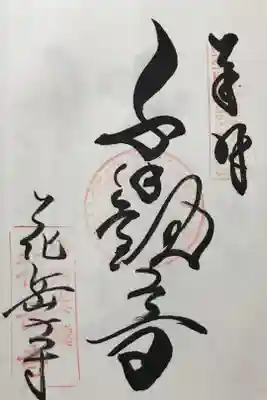 奉拝
千手観音
花岳寺